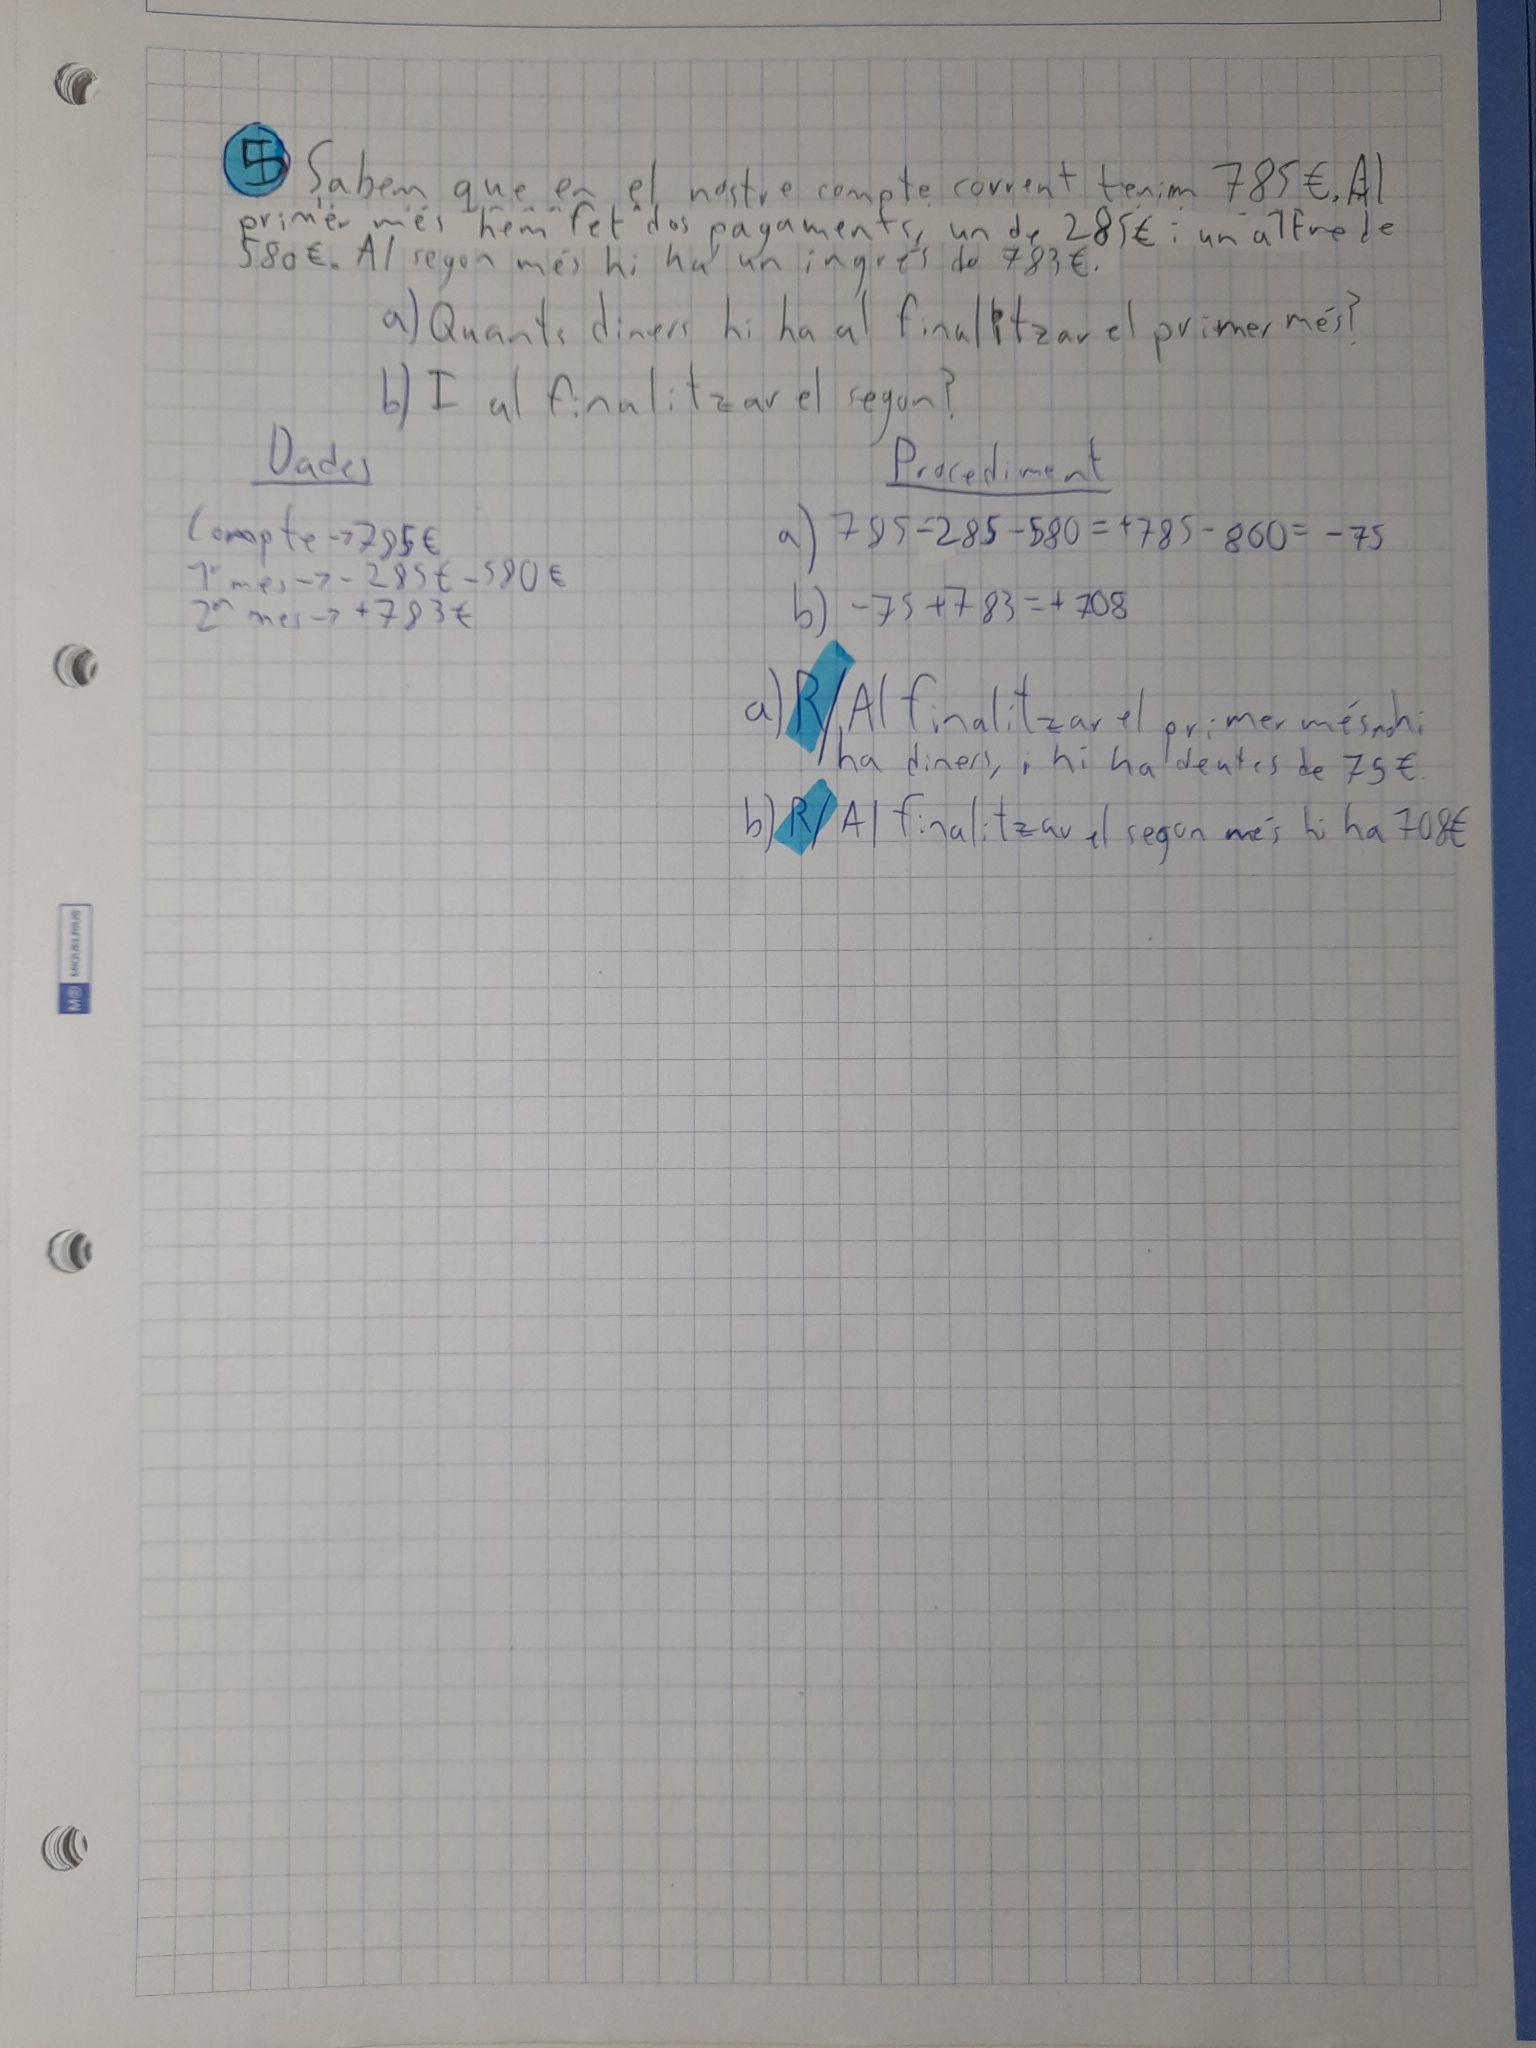 5 Sabem que en el nostre compte corrent tenim 785€. Al
primer més hem fet dos pagaments, un de 285€ i un altre de
580€. Al segon més hi ha un ingrés de 783€.
a) Quants diners hi ha al finalitzar el primer més?
b) I al finalitzar el segon?
Dades
Compte → 785€
1r més → - 285€ - 580€
2n mes → + 783€
Procediment
a) 785-285-580=+785-860= -75
b) -75+783=+708
a) R/ Al finalitzar el primer més no hi
ha diners, i hi ha deutes de 75€.
b) R/ Al finalitzar el segon més hi ha 708€
M® MIQUELRIUS